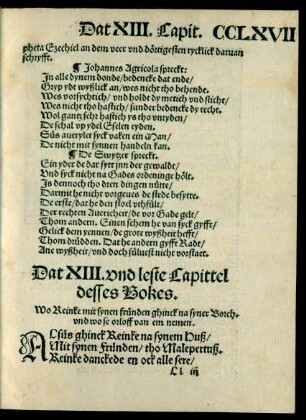 Dat XIII. Capit. CCLXVII
pheta Ezechiel an dem veer vnd dörtigesten tycklick daruan
schryfft.
¶ Johannes Agricola spreckt:
In alle dynem donde/bedencke dat ende/
Gryp yde wyßlick an/wes nicht tho behende.
Wes vorsychtich/vnd holdt dy metich vnd slicht/
Wes nicht tho hastich/sunder bedencke dy recht.
Wol gantz sehr hastich ys tho vnryden/
De schal vp ydel Eselen ryden.
Süs auerylet syck vaken ein Man/
De nicht mit synnen handeln kan.
¶ De Swytzer spreckt.
Ein yder de dar sytt jnn der gewaldt/
Vnd syck nicht na Gades ordeninge hölt.
Is dennoch tho dren dingen nütte/
Darmit he nicht vorgeues de stede besytte.
De erste/dat he den stoel vthfült/
Der rechten Auericheit/de vor Gade gelt/
Thom andern. Einen schem he van syck gyfft/
Gelick dem yennen/de grote wyßheit hefft/
Thom drüdden. Dat he andern gyfft Radt/
Ane wyßheit/vnd doch süluest nicht vorstaet.
Dat XIII. vnd leste Capittel
desses Bokes.
Wo Reinke mit synen fründen ghinck na syner Borch,
vnd wo se orloff van em nemen.
Alsüs ghinck Reinke na synem Huß/
Mit synen Fründen/tho Malepertuß.
Reinke danckede en ock alle sere/
Ll iij